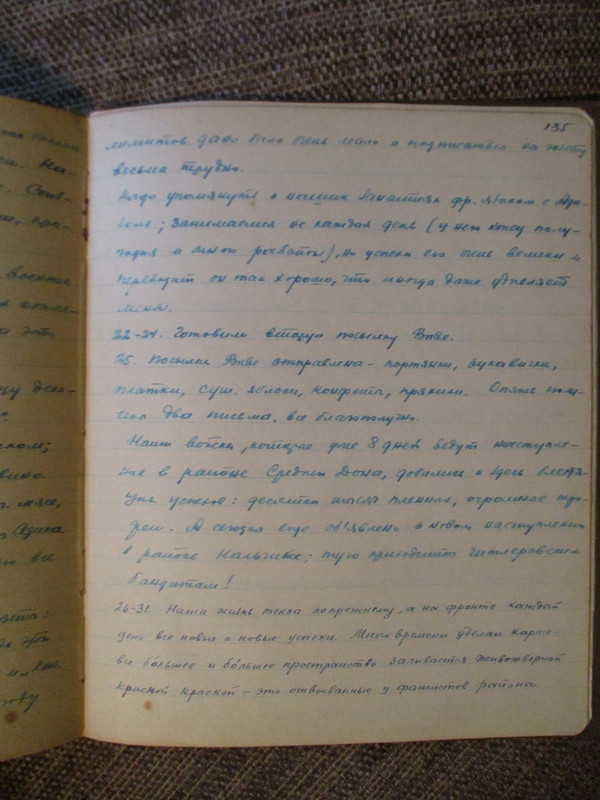 135
лимитов дано было очень мало и подписаться на газету
весьма трудно.
Надо упомянуть о наших занятиях фр. языком с
; занимаемся не каждый день (у нее конец полу-
годия и много работы), но успехи его очень велики и
переводит он так хорошо, что иногда даже удивляет
меня.
22-24. Готовили вторую посылку Вите.
25. Посылка Вите отправлена - портянки, рукавички,
платки, суш. яблоки, конфеты, пряники. Опять полу-
чено два письма, все благополучно.
Наши войска, которые уже 8 дней ведут наступле-
ние в районе Среднего Дона, добились и здесь блестя-
щих успехов: десятки тысяч пленных, огромные тро-
феи. А сегодня еще объявлено о новом наступлении
в районе Нальчика: туго приходится гитлеровским
бандитам!
26-31. Наша жизнь текла попрежнему, а на фронте каждый
день все новые и новые успехи. Много времени уделяю карте -
все бо́льшее и бо́льшее пространство заливается животворной
красной краской - это отвоеванные у фашистов районы.